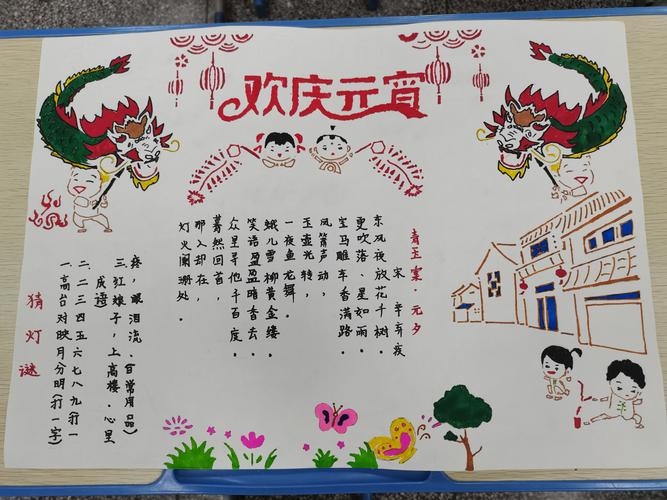 欢庆元宵
青玉案·元夕
宋 辛弃疾
东风夜放花千树.
更吹落、星如雨.
宝马雕车香满路.
凤箫声动,
玉壶光转,
一夜鱼龙舞.
蛾儿雪柳黄金缕.
笑语盈盈暗香去.
众里寻他千百度.
蓦然回首,
那人却在,
灯火阑珊处.
猜灯谜
一高台对映月分明(打一字)
二.二三四五六七八九(打一
成语)
三红娘子,上高楼.心里
疼,眼泪流.日常用品)